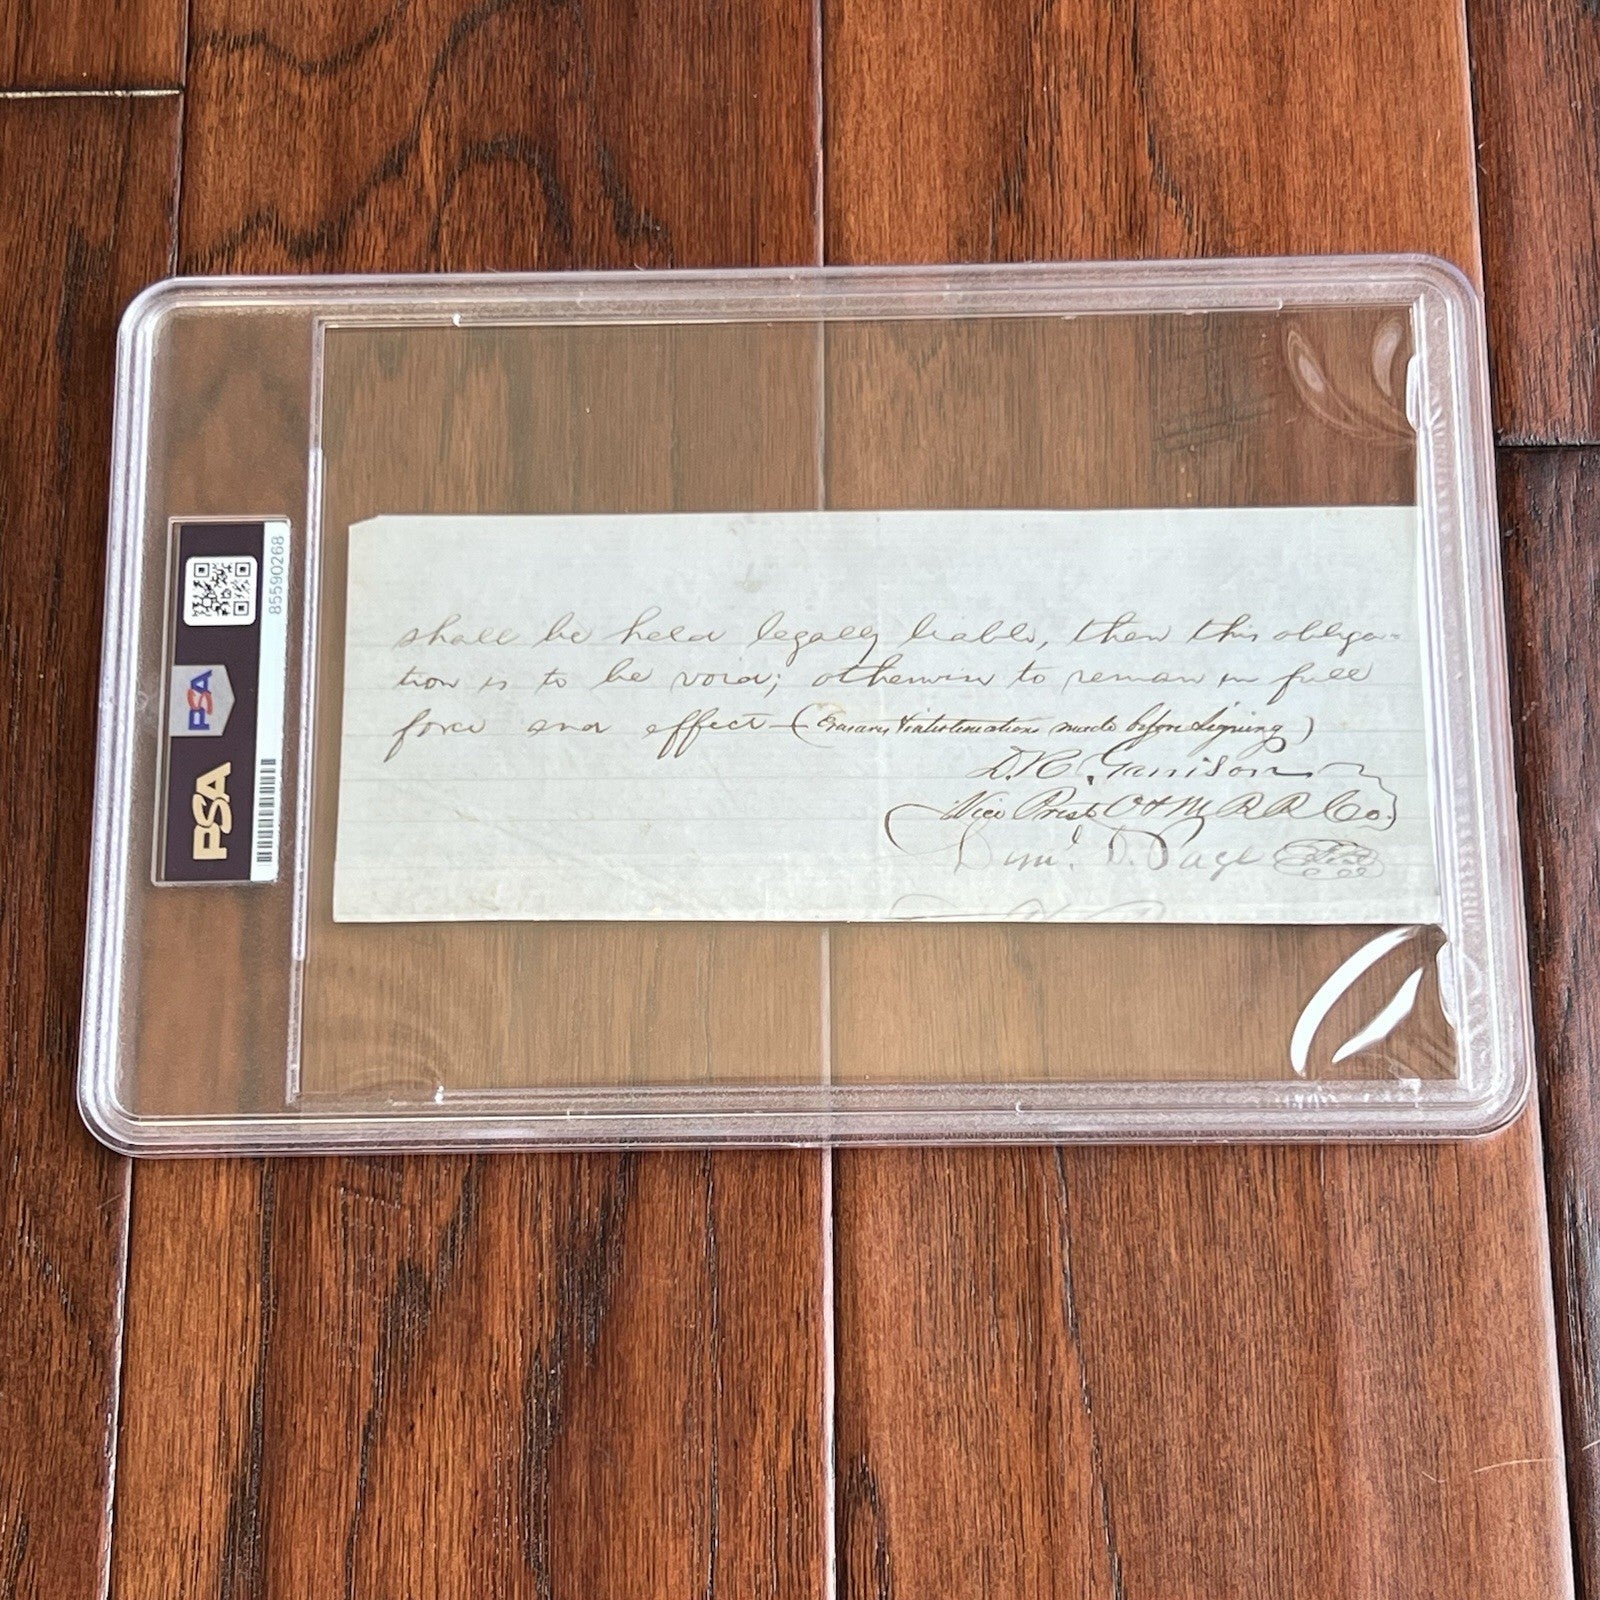 shall be held legally liable, then this obliga-
tion is to be void; otherwise to remain in full
force and effect - (Erasures & interlineations made before signing)
D. R. Garrison
Vice Prest O & M R R Co.
Danl. D. Page
85590268
PSA
PSA